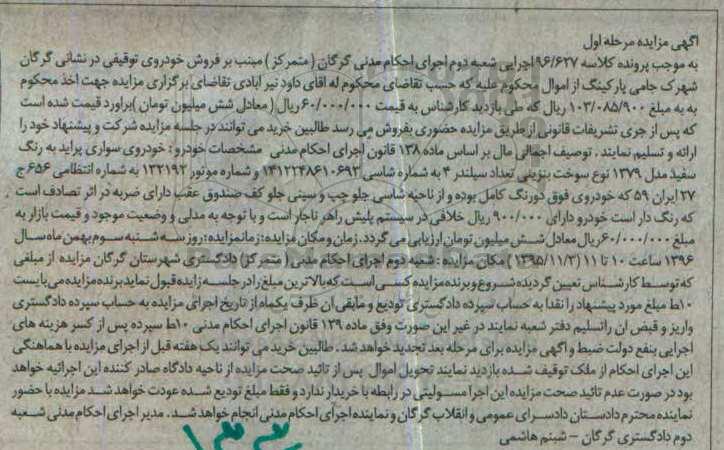 آگهی مزایده مرحله اول
به موجب پرونده کلاسه ۹۶/۶۲۷ اجرایی شعبه دوم اجرای احکام مدنی گرگان ( متمرکز ) مبنب بر فروش خودروی توقیفی در نشانی گرگان
شهرک جامی پارکینگ از اموال محکوم علیه که حسب تقاضای محکوم له اقای داود نیر ابادی تقاضای برگزاری مزایده جهت اخذ محکوم
به به مبلغ ۱۰۳/۰۸۵/۹۰۰ ریال که طی بازدید کارشناس به قیمت ۶۰/۰۰۰/۰۰۰ ریال ( معادل شش میلیون تومان ) براورد قیمت شده است
که پس از جری تشریفات قانونی از طریق مزایده حضوری بفروش می رسد طالبین خرید می توانند در جلسه مزایده شرکت و پیشنهاد خود را
ارائه و تسلیم نمایند . توصیف اجمالی مال بر اساس ماده ۱۳۸ قانون اجرای احکام مدنی مشخصات خودرو : خودروی سواری پراید به رنگ
سفید مدل ۱۳۷۹ نوع سوخت بنزینی تعداد سیلندر ۴ به شماره شاسی ۱۴۱۲۲۴۸۶۱۰۶۹۳ و شماره موتور ۱۳۲۱۹۲ به شماره انتظامی ۶۵۶ ج
۲۷ ایران ۵۹ که خودروی فوق دورنگ کامل بوده و از ناحیه شاسی جلو چپ و سینی جلو کف صندوق عقب دارای ضربه در اثر تصادف است
که رنگ دار است خودرو دارای ۹۰۰/۰۰۰ ریال خلافی در سیستم پلیش راهر ناجار است و با توجه به مدلی و وضعیت موجود و قیمت بازار به
مبلغ ۶۰/۰۰۰/۰۰۰ ریال معادل شش میلیون تومان ارزیابی می گردد. زمان و مکان مزایده : زمانمزایده : روز سه شنبه سوم بهمن ماه سال
۱۳۹۶ ساعت ۱۰ تا ۱۱ (۱۳۹۵/۱۱/۳) مکان مزایده : شعبه دوم اجرای احکام مدنی ( متمرکز) دادگستری شهرستان گرگان مزایده از مبلغی
که توسط کارشناس تعیین گردیده شروع و برنده مزایده کسی است که بالاترین مبلغ را در جلسه زایده قبول نماید برنده مزایده می بایست
۱۰٪ مبلغ مورد پیشنهاد را نقدا به حساب سپرده دادگستری تودیع و مابقی ان ظرف یکماه از تاریخ اجرای مزایده به حساب سپرده دادگستری
واریز و قبض ان راتسلیم دفتر شعبه نمایند در غیر این صورت وفق ماده ۱۲۹ قانون اجرای احکام مدنی ۱۰٪ سپرده پس از کسر هزینه های
اجرایی بنفع دولت ضبط و اگهی مزایده برای مرحله بعد تجدید خواهد شد . طالبین خرید می توانند یک هفته قبل از اجرای مزایده با هماهنگی
این اجرای احکام از ملک توقیف شده بازدید نمایند تحویل اموال پس از تائید صحت مزایده از ناحیه دادگاه صادر کننده این اجرائیه خواهد
بود در صورت عدم تائید صحت مزایده این اجرا مسولیتی در رابطه با خریدار ندارد و فقط مبلغ تودیع شده عودت خواهد شد مزایده با حضور
نماینده محترم دادستان دادسرای عمومی و انقلاب گرگان و نماینده اجرای احکام مدنی انجام خواهد شد . مدیر اجرای احکام مدنی شعبه
دوم دادگستری گرگان – شبنم هاشمی